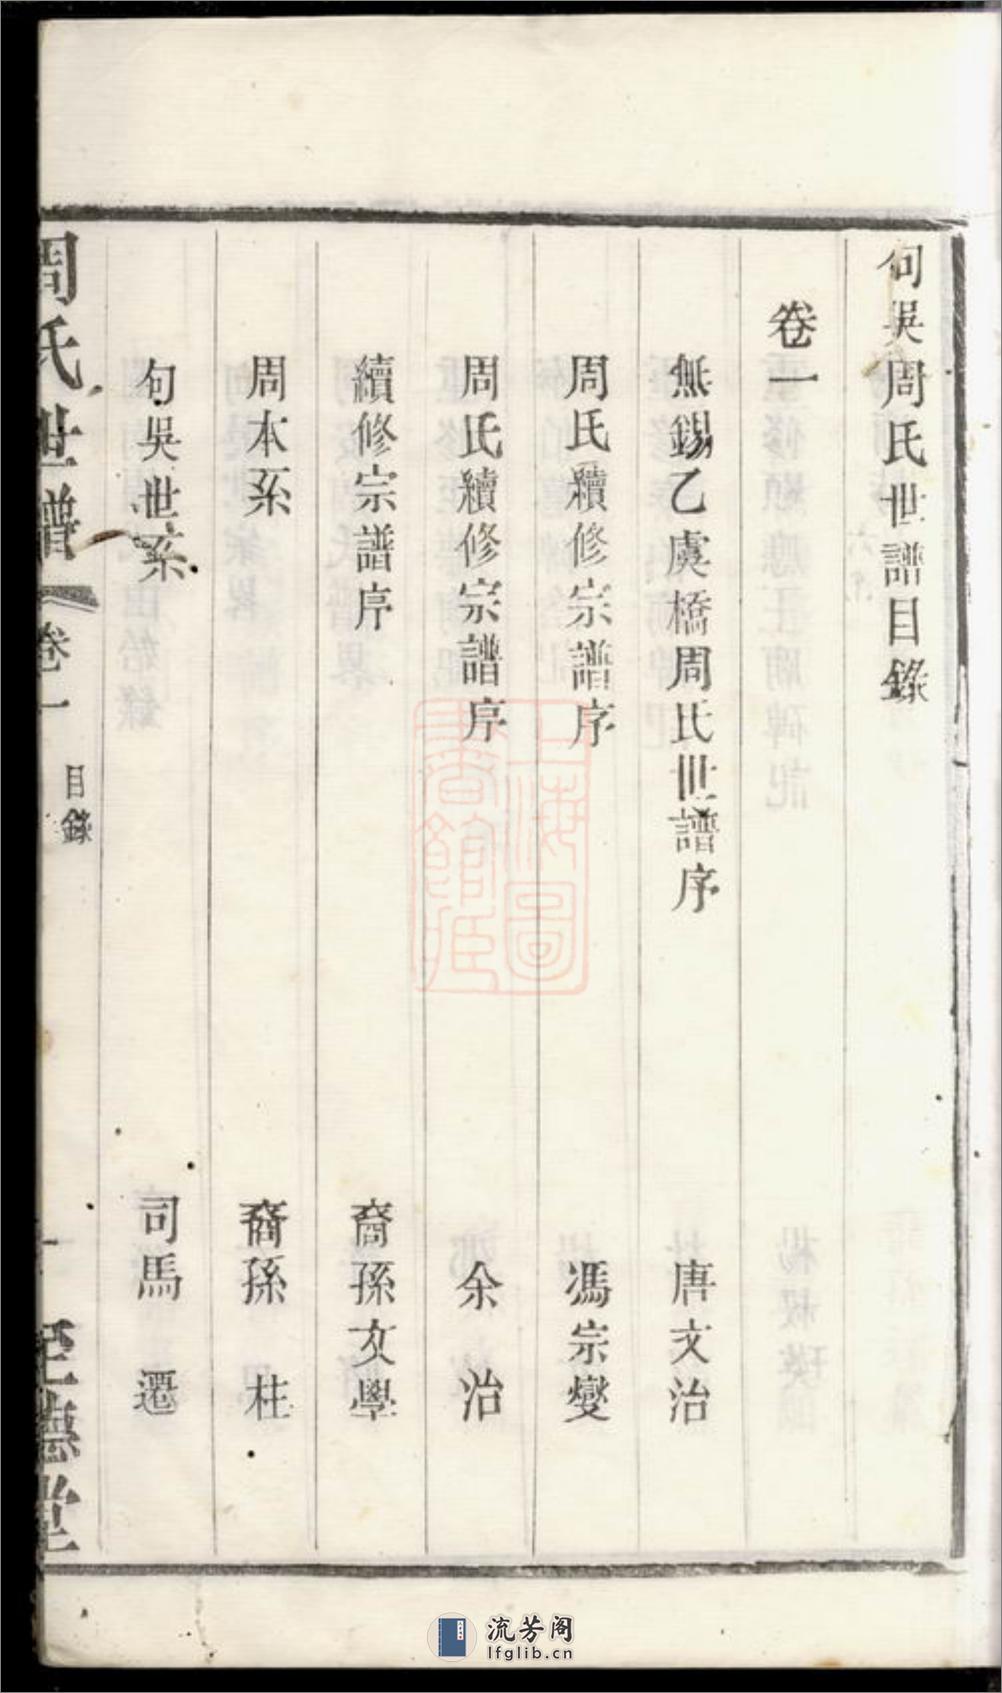 句吳周氏世譜目錄
卷一
無錫乙虞橋周氏世譜序 唐文治
周氏續修宗譜序 馮宗燮
周氏續修宗譜序 余治
續修宗譜序 裔孫文學
周本系 裔孫柱
句吳世系 司馬遷
周氏世譜 卷一 目錄 一 至德堂
上海圖書館藏
流芳阁
lfglib.cn